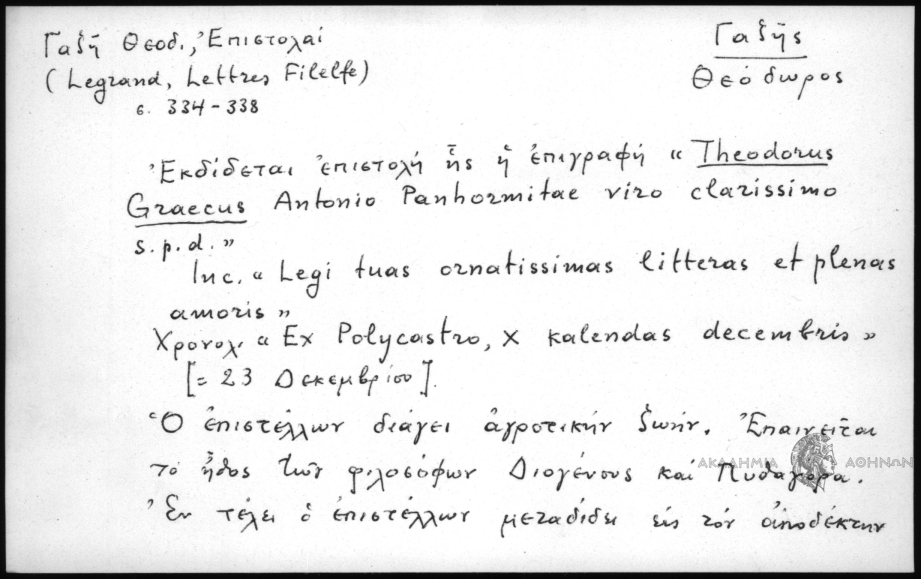 Γαζῆ Θεοδ., Ἐπιστολαί
(Legrand, Lettres Filelfe)
σ. 334-338
Γαζῆς
Θεόδωρος
Ἐκδίδεται ἐπιστολή ἧς ἡ ἐπιγραφή « Theodorus
Graecus Antonio Panhormitae viro clarissimo
s.p.d. »
Inc. « Legi tuas ornatissimas litteras et plenas
amoris »
Χρονολ. « Ex Polycastro, X kalendas decembris »
[= 23 Δεκεμβρίου].
Ὁ ἐπιστέλλων διάγει ἀγροτικήν ζωήν. Ἐπαινεῖται
τό ἦθος τῶν φιλοσόφων Διογένους καί Πυθαγόρα.
ΑΚΑΔΗΜΙΑ ΑΘΗΝΩΝ
Ἐν τέλει ὁ ἐπιστέλλων μεταδίδει εἰς τόν ἀποδέκτην